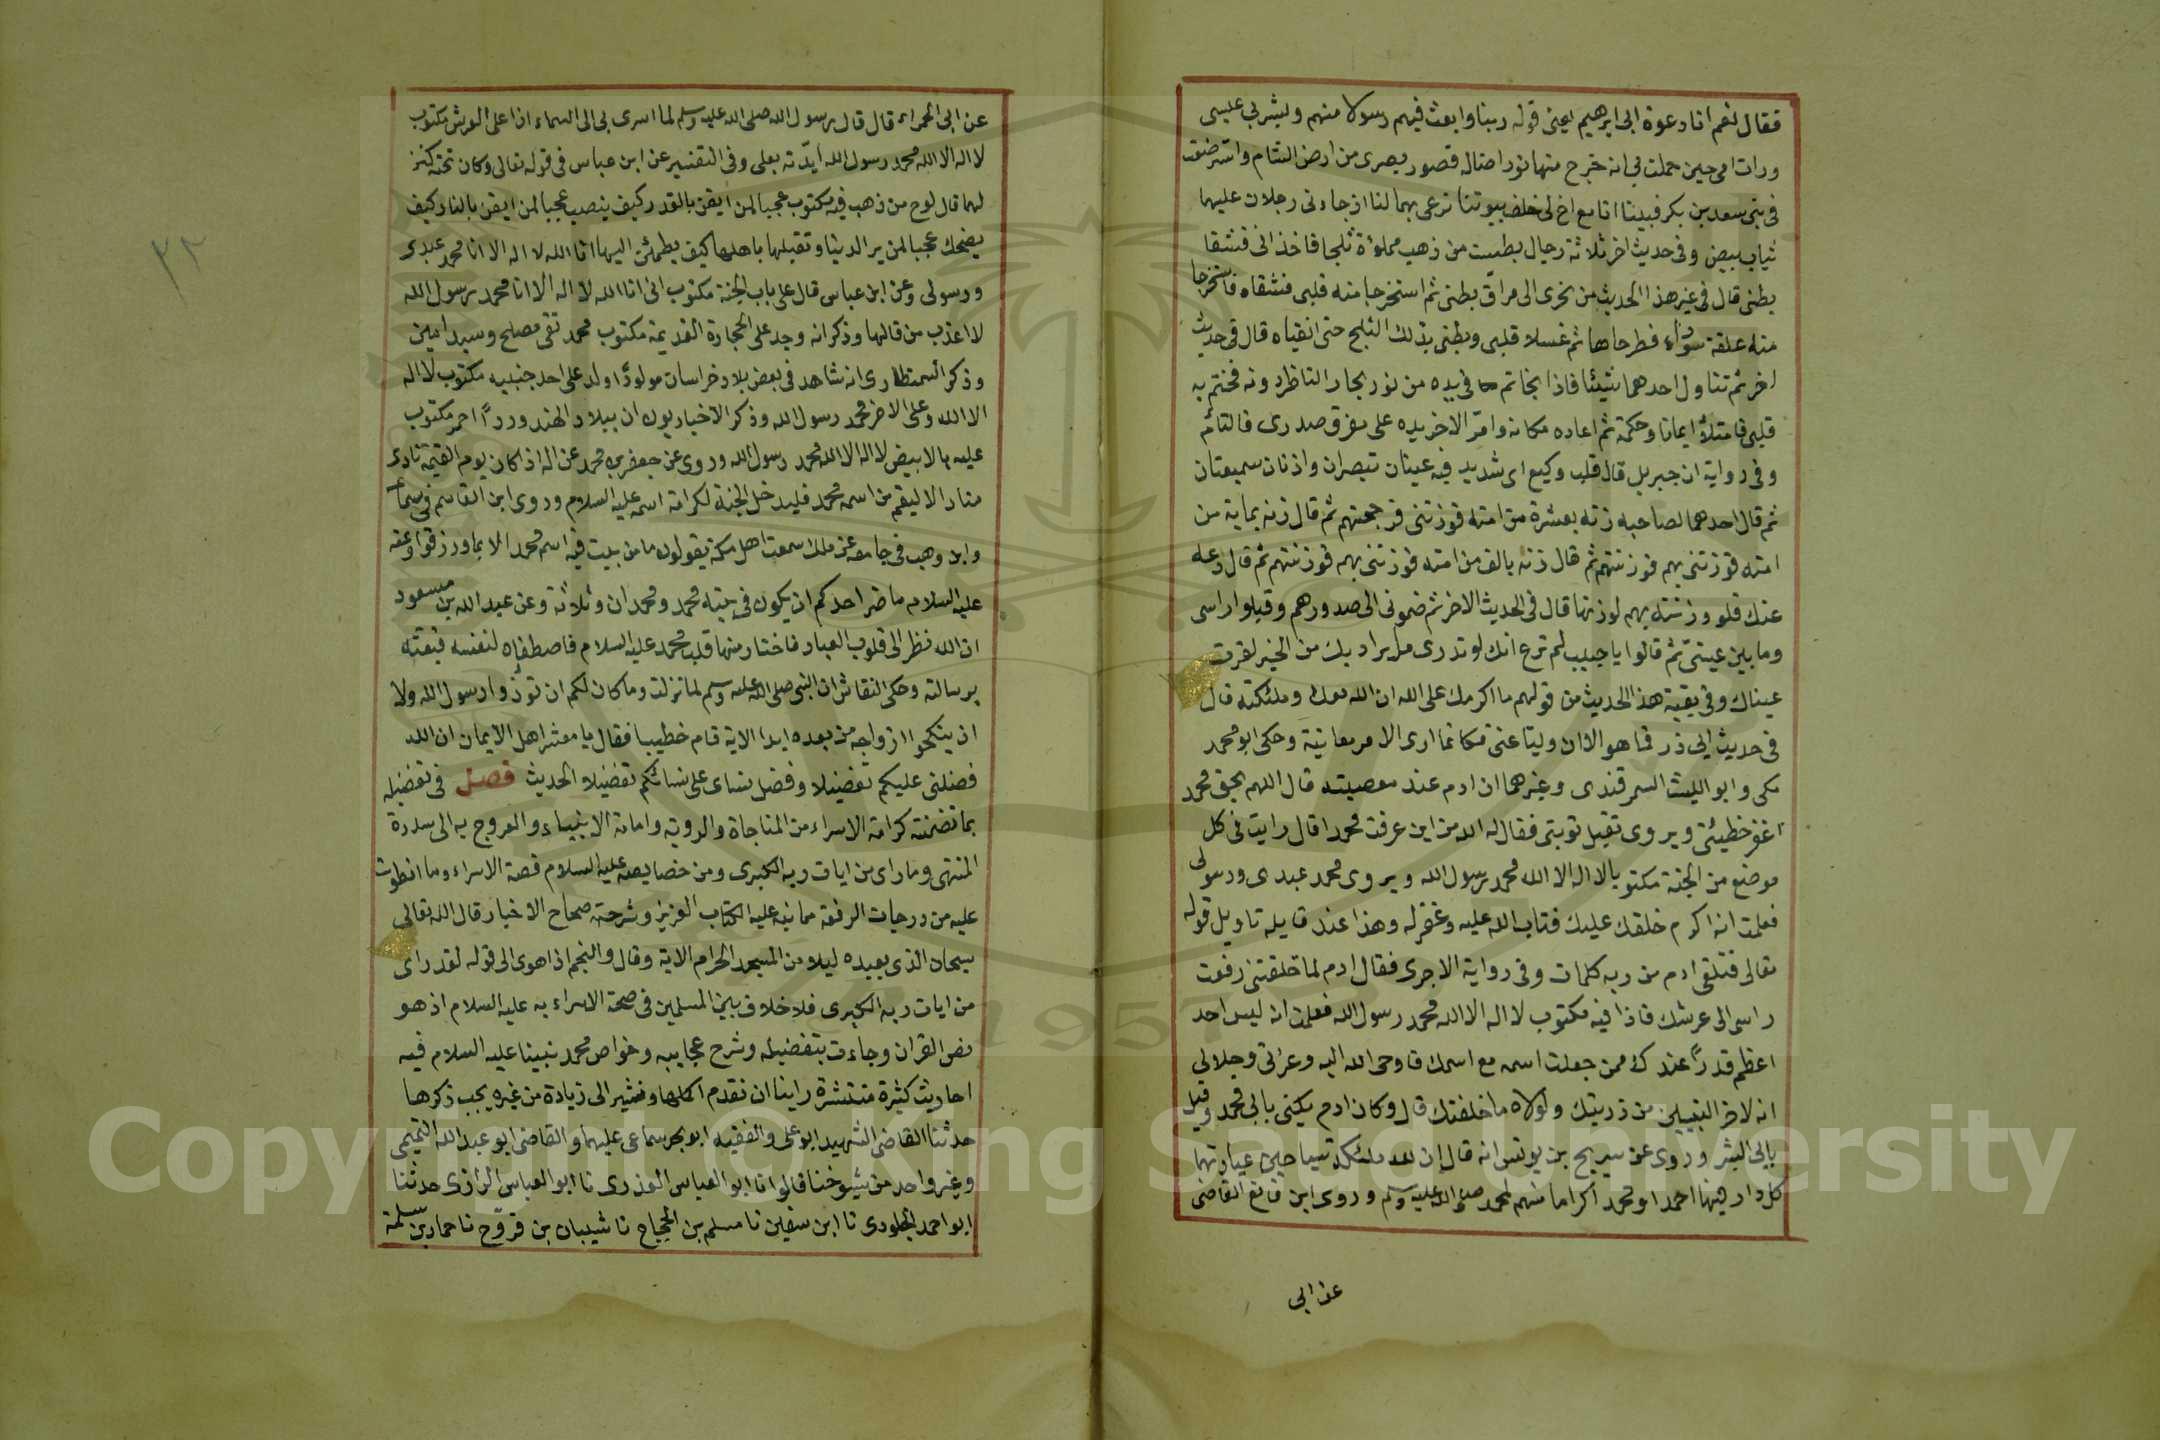 فقال نعم انا دعوة ابى ابرهيم يعنى قوله ربنا وابعث فيهم رسولا منهم وبشر بي عيسى
ورات امى حين حملت بى انه خرج منها نور اضاله قصور بصرى من ارض الشام واسترضعت
فى بنى سعد بن بكر فبينا انا مع اخ لى خلف بيوتنا نرعى بهما لنا اذ جاءنى رجلان عليهما
ثياب بيض وفى حديث اخر ثلاثة رجال بطست من ذهب مملؤة ثلجا فاخذانى فشقا
بطنى قال فى غير هذا الحديث من نحرى الى مراق بطنى ثم استخرجا منه قلبى فشقاه فاستخرجا
منه علقة سوداء فطرحاها ثم غسلا قلبى وبطنى بذلك الثلج حتى انقياه قال فى حديث
اخر ثم تناول احدهما شيئا فاذا بخاتم فى يده من نور يحار الناظر دونه فختم به
قلبى فامتلأ ايمانا وحكمة ثم اعاده مكانه وامر الاخر يده على مفرق صدرى فالتأم
وفى رواية ان جبريل قال قلب وكيع اى شديد فيه عينان تبصران واذنان سميعتان
ثم قال احدهما لصاحبه زنه بعشرة من امته فوزننى فرجحتهم ثم قال زنه بماية من
امته فوزننى بهم فوزنتهم ثم قال زنه بالف من امته فوزننى بهم فوزنتهم ثم قال دعه
عنك فلو وزنته بهم لوزنها قال فى الحديث الاخر ثم ضمونى الى صدورهم وقبلوا راسى
وما بين عينىّ ثم قالوا يا حبيب لم ترع انك لو تدرى ما يراد بك من الخير لقرت
عيناك وفى بقية هذا الحديث من قولهم ما اكرمك على الله ان الله معك وملئكته قال
فى حديث ابى ذر فما هو الا ان وليا عنى فكانما ارى الامر معاينة وحكى ابو محمد
مكى وابو الليث السمرقندى وغيرهما ان ادم عند معصيته قال اللهم بحق محمد
اغفر خطيئتى ويروى تقبل توبتى فقال له الله من اين عرفت محمدا قال رايت فى كل
موضع من الجنة مكتوبا لا اله الا الله محمد رسول الله ويروى محمد عبدى ورسولى
فعلمت انه اكرم خلقك عليك فتاب الله عليه وغفر له وهذا عند قايله تاويل قوله
تعالى فتلقى ادم من ربه كلمات وفى رواية الاجرى فقال ادم لما خلقتنى رفعت
راسى الى عرشك فاذا فيه مكتوب لا اله الا الله محمد رسول الله فعلمت انه ليس احد
اعظم قدرًا عندك ممن جعلت اسمه مع اسمك فاوحى الله اليه وعزتى وجلالى
انه لاخر النبيين من ذريتك ولولاه ما خلقتك قال وكان ادم يكنى بابى محمد وقيل
بابى البشر وروى عن سريج بن يونس انه قال ان لله ملئكة سياحين عيادتها
كل دار فيها احمد او محمد اكراما منهم لمحمد صلى الله عليه وسلم وروى ابن قانع القاضى
عن ابى
عن ابى الحمراء قال قال رسول الله صلى الله عليه وسلم لما اسرى بى الى السماء اذا على العرش مكتوب
لا اله الا الله محمد رسول الله ايدته بعلى وفى التفسير عن ابن عباس فى قوله تعالى وكان تحته كنز
لهما قال لوح من ذهب فيه مكتوب عجبا لمن ايقن بالقدر كيف ينصب عجبا لمن ايقن بالنار كيف
يضحك عجبا لمن ير الدنيا وتقبلها باهلها كيف يطمئن اليها انا الله لا اله الا انا محمد عبدى
ورسولى وعن ابن عباس قال على باب الجنة مكتوب انى انا الله لا اله الا انا محمد رسول الله
لا اعذب من قالها وذكر انه وجد على الحجارة القديمة مكتوب محمد تقى مصلح وسيد امين
وذكر السمنطارى انه شاهد فى بعض بلاد خراسان مولودًا ولد على احد جنبيه مكتوب لا اله
الا الله وعلى الاخر محمد رسول الله وذكر الاخباريون ان ببلاد الهند وردًا احمر مكتوب
عليه بالابيض لا اله الا الله محمد رسول الله وروى عن جعفر بن محمد عن اذا كان يوم القيمة نادى
مناد الا ليقم من اسمه محمد فليدخل الجنة لكرامة اسمه عليه السلام وروى ابن القاسم فى سماعه
وابن وهب فى جامعه عن ملك سمعت اهل مكة يقولون ما من بيت فيه اسم محمد الا نما ورزقوا وعنه
عليه السلام ما ضر احدكم ان يكون فى بيته محمد ومحمدان وثلاثة وعن عبد الله بن مسعود
ان الله نظر الى قلوب العباد فاختار منها قلب محمد عليه السلام فاصطفاه لنفسه فبعثه
برسالته وحكى النقاش ان النبى صلى الله عليه وسلم لما نزلت وما كان لكم ان تؤذوا رسول الله ولا
ان ينكحوا ازواجه من بعده ابدا الاية قام خطيبا فقال يا معشر اهل الايمان ان الله
فضلنى عليكم تفضيلا وفضل نساى على نسائكم تفضيلا الحديث فصل فى تفضيله
بما تضمنته كرامة الاسراء من المناجاة والروية وامامة الانبياء والعروج به الى سدرة
المنتهى وما راى من ايات ربه الكبرى ومن خصايصه عليه السلام قصة الاسراء وما انطوت
عليه من درجات الرفعة مما نبه عليه الكتاب العزيز وشرحته صحاح الاخبار قال الله تعالى
سبحان الذى بعبده ليلا من المسجد الحرام الاية وقال والنجم اذا هوى الى قوله لقد راى
من ايات ربه الكبرى فلا خلاف بين المسلمين فى صحة الاسراء به عليه السلام اذ هو
نص القران وجاءت بتفضيله وشرح عجايبه وخواص محمد نبينا عليه السلام فيه
احاديث كثيرة منتشرة راينا ان نقدم اكملها ونشير الى زيادة من غيره يجب ذكرها
حدثنا القاضى الشهيد ابو على والفقيه ابو بحر سماعى عليهما والقاضى ابو عبد الله التميمى
وغير واحد من شيوخنا قالوا نا ابو العباس العذرى نا ابو العباس الرازى حدثنا
ابو احمد الجلودى نا ابن سفين نا مسلم بن الحجاج نا شيبان بن فروخ نا حماد بن سلمة
٣٢
Copyright © King Saud University
1957